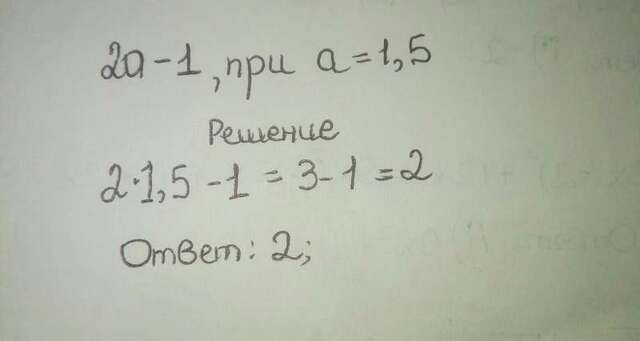 2a-1, при a=1,5
Решение
2·1,5-1=3-1=2
Ответ: 2;